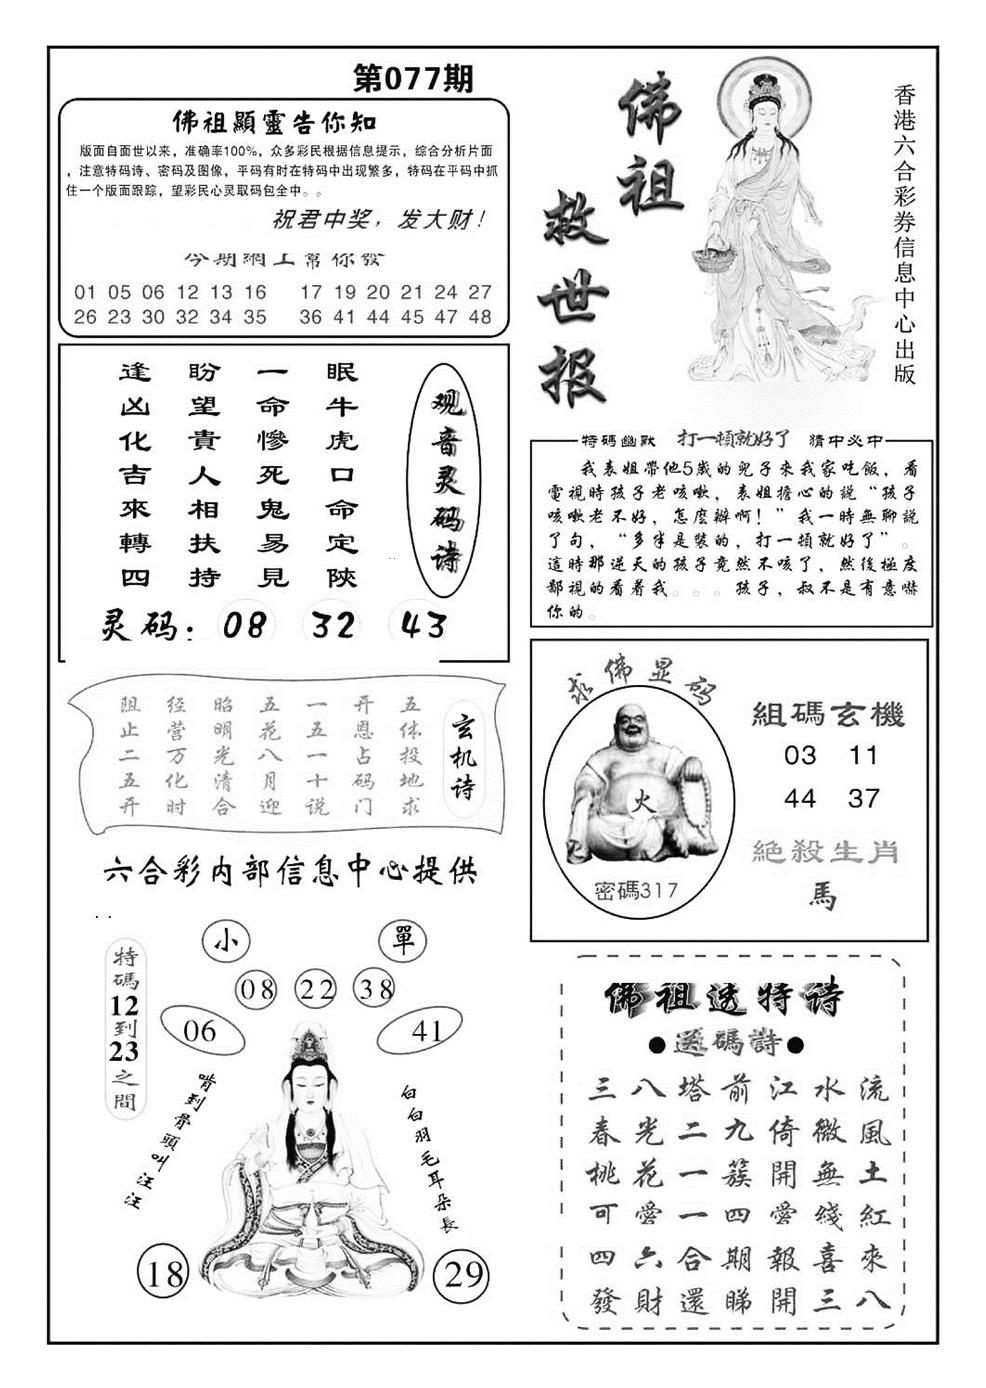 第077期
佛祖顯靈告你知
版面自面世以来，准确率100%，众多彩民根据信息提示，综合分析片面
，注意特码诗、密码及图像，平码有时在特码中出现繁多，特码在平码中抓
住一个版面跟踪，望彩民心灵取码包全中。。
祝君中奖，发大财！
今期網工幫你發
01 05 06 12 13 16 17 19 20 21 24 27
26 23 30 32 34 35 36 41 44 45 47 48
佛祖
救世报
香港六合彩券信息中心出版
观音灵码诗
眠牛虎口命定陝
一命慘死鬼易見
盼望貴人相扶持
逢凶化吉來轉四
灵码：08 32 43
特碼幽默 打一頓就好了 猜中必中
我表姐帶他5歲的兒子來我家吃飯，看
電視時孩子老咳嗽，表姐擔心的說“孩子
咳嗽老不好，怎麼辦啊！”我一時無聊説
了句，“多半是裝的，打一頓就好了”。
這時那逆天的孩子竟然不咳了，然後極度
鄙視的看着我。。。孩子，叔不是有意嚇
你的。
玄机诗
五体投地求
开恩占码门
一五一十说
五花八月迎
昭明光清合
经营万化时
阻止二五开
求佛显码
火
密碼317
組碼玄機
03 11
44 37
絕殺生肖
馬
六合彩内部信息中心提供
小 單
08 22 38
06 41
特碼12到23之間
啃到骨頭叫汪汪
白白羽毛耳朵長
18 29
佛祖透特诗
●透碼詩●
三八塔前江水流
春光二九倚微風
桃花一簇開無土
可愛一四愛綫紅
四六合期報喜來
發財還睇開三八